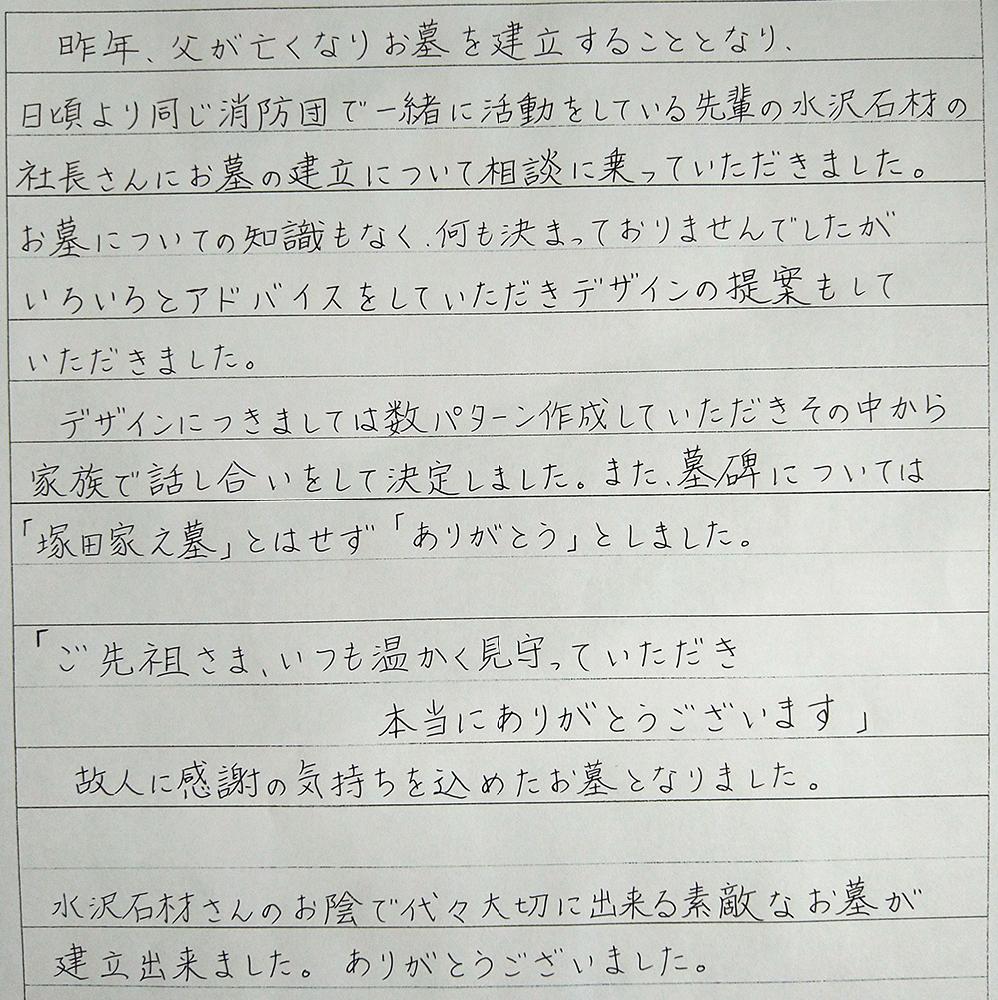 昨年、父が亡くなりお墓を建立することとなり、
日頃より同じ消防団で一緒に活動をしている先輩の水沢石材の
社長さんにお墓の建立について相談に乗っていただきました。
お墓についての知識もなく、何も決まっておりませんでしたが
いろいろとアドバイスをしていただきデザインの提案もして
いただきました。
デザインにつきましては数パターン作成していただきその中から
家族で話し合いをして決定しました。また、墓碑については
「塚田家之墓」とはせず「ありがとう」としました。
「ご先祖さま、いつも温かく見守っていただき
本当にありがとうございます」
故人に感謝の気持ちを込めたお墓となりました。
水沢石材さんのお陰で代々大切に出来る素敵なお墓が
建立出来ました。ありがとうございました。